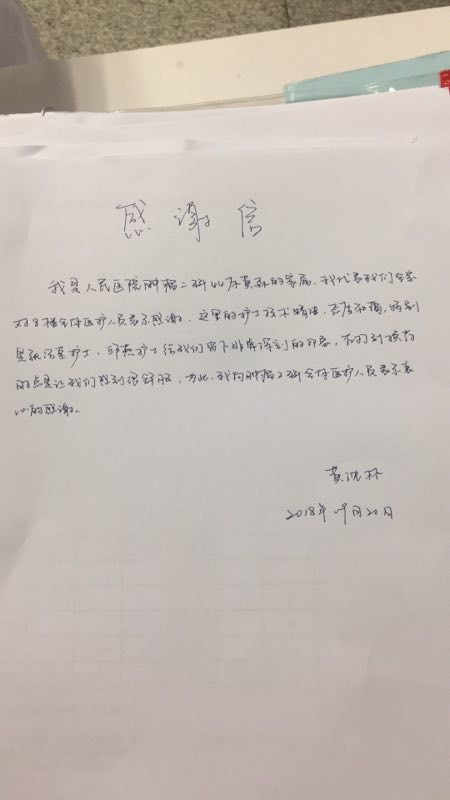 感谢信
我是人民医院肿瘤二科44床黄森的家属，我代表我们全家
对8楼全体医护人员表示感谢，这里的护士技术精湛，态度和蔼，特别
是张 护士、 护士给我们留下非常深刻的印象，不习到换药
的点是让我们感到很舒服，为此，我向肿瘤2科全体医护人员表示衷
心的感谢。
黄沈林
2018年4月20日